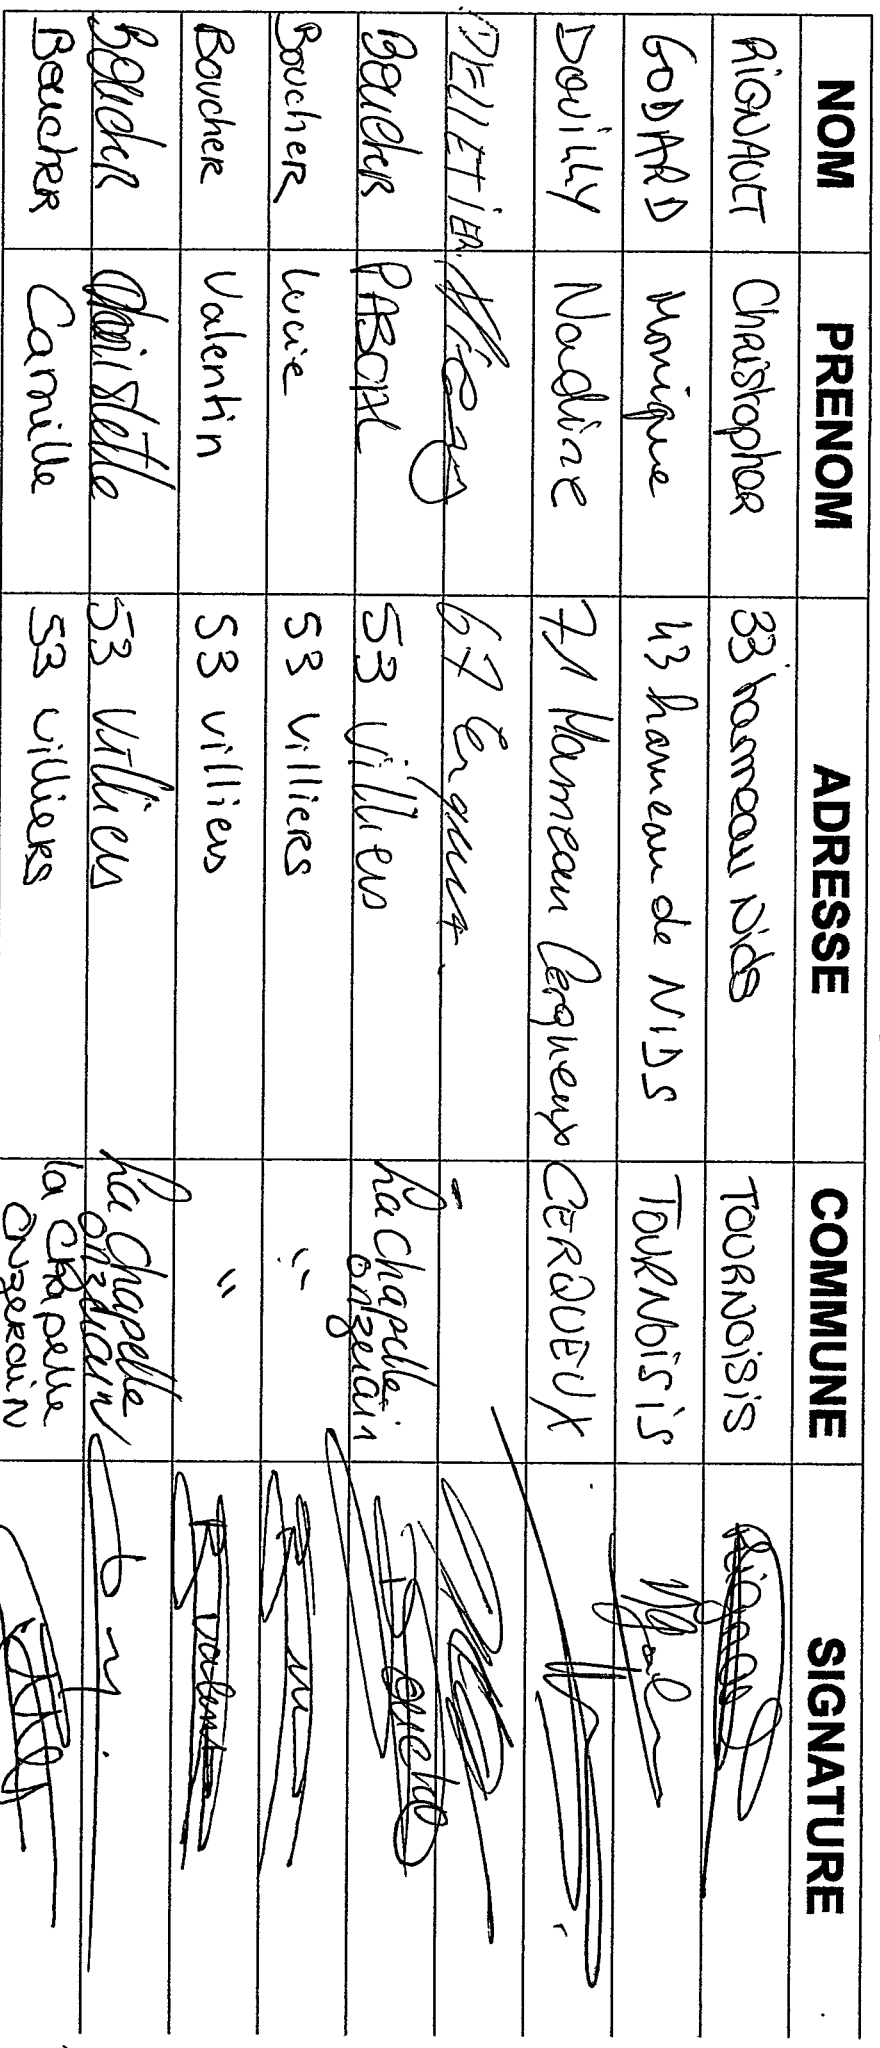 NOM PRENOM ADRESSE COMMUNE SIGNATURE
RIGNAULT Christopher 33 hameau Nids TOURNOISIS
GODARD Monique 43 hameau de NIDS TOURNOISIS
DOUILLY Nadine 71 Hameau Cerqueux CERQUEUX
PELLETIER 67
Boucher PASCAL 53 Villiers La Chapelle
onzerain Boucher
Boucher Lucie 53 Villiers "
Boucher Valentin 53 villiers " B Valentin
Boucher Christelle 53 Villiers La Chapelle
onzerain
Boucher Camille 53 villiers la Chapelle
Onzerain